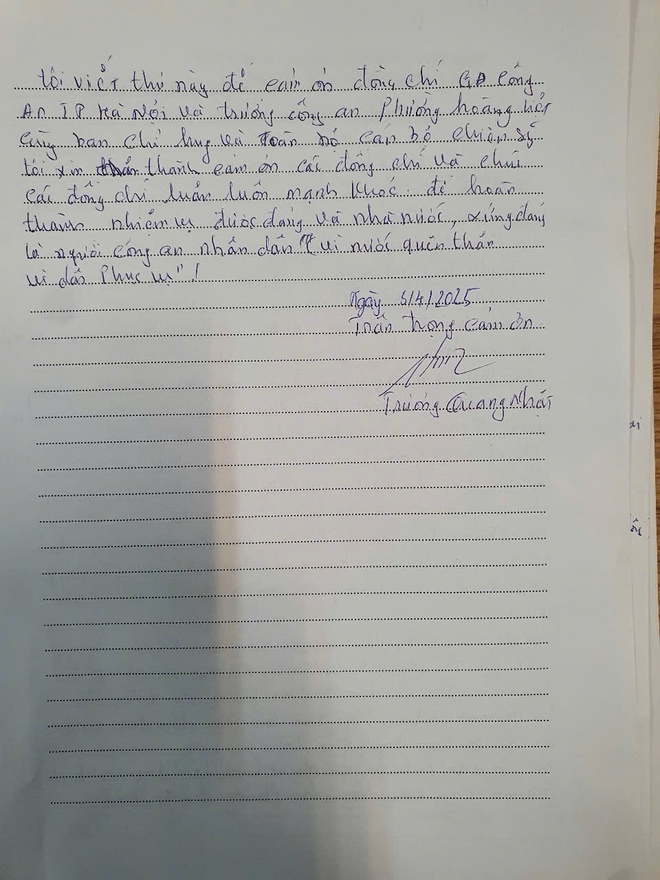 Tôi viết thư này để cảm ơn đồng chí GĐ công
An TP Hà Nội và trưởng công an Phường hoàng liệt
cùng ban chỉ huy và toàn bộ cán bộ chiến sỹ
tôi xin thành cảm ơn các đồng chí và chúc
các đồng chí luôn luôn mạnh khỏe để hoàn
thành nhiệm vụ được đảng và nhà nước, xứng đáng
là người công an nhân dân "vì nước quên thân
vì dân phục vụ"!
Ngày 5/4/2025
Trân trọng cảm ơn
Trương Quang Nhật